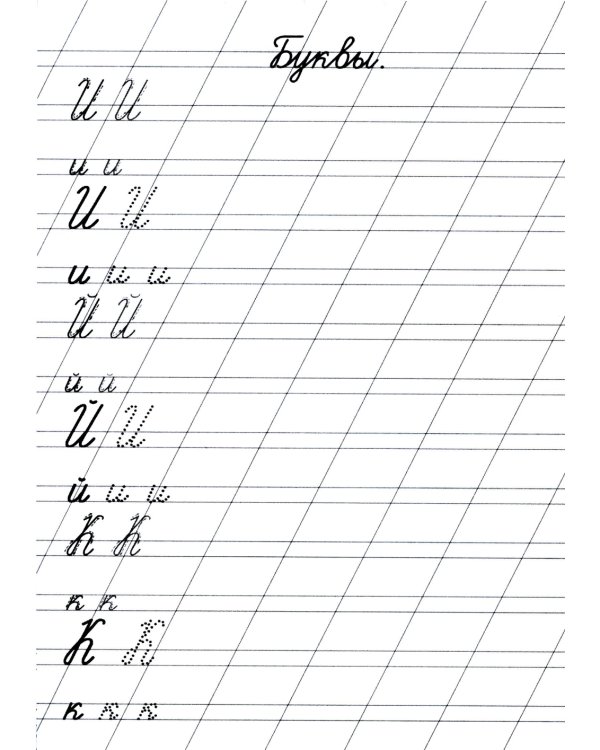 Буквы.
И И
и и
И И
и и и
Й Й
й й
Й И
й и и
К К
к к
К К
к к к